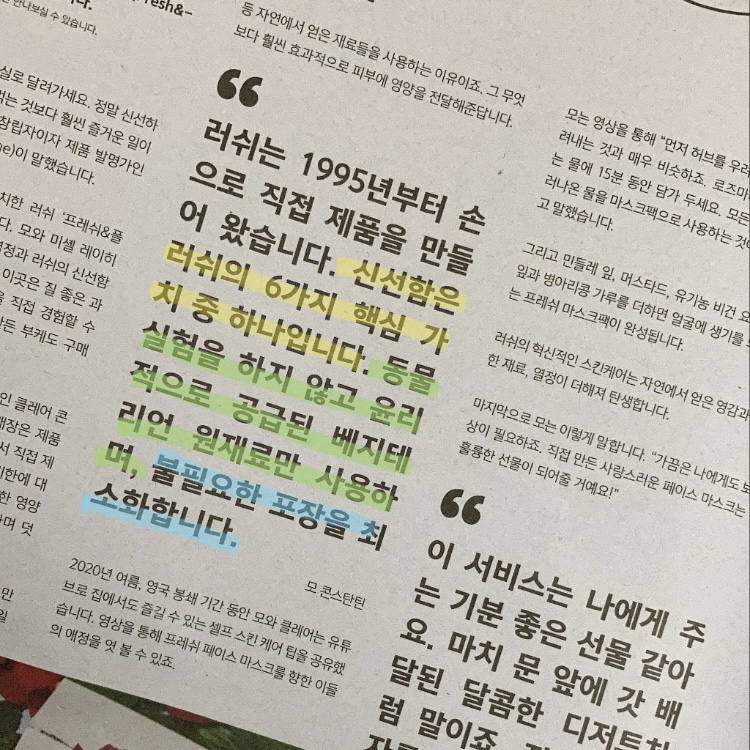 만나보실 수 있습니다.
실로 달려가세요. 정말 신선하
먹는 것보다 훨씬 즐거운 일이
창립자이자 제품 발명가인
이 말했습니다.
치한 러쉬 ‘프레쉬&플
다. 모와 미셸 레이히
열정과 러쉬의 신선함
이곳은 질 좋은 과
직접 경험할 수
만든 부케도 구매
인 클레어 콘
매장은 제품
서 직접 제
한 영양
등 자연에서 얻은 재료들을 사용하는 이유이죠. 그 무엇
보다 훨씬 효과적으로 피부에 영양을 전달해준답니다.
“
러쉬는 1995년부터 손
으로 직접 제품을 만들
어 왔습니다. 신선함은
러쉬의 6가지 핵심 가
치 중 하나입니다. 동물
실험을 하지 않고 윤리
적으로 공급된 베지테
리언 원재료만 사용하
며, 불필요한 포장을 최
소화합니다.
모 콘스탄틴
2020년 여름, 영국 봉쇄 기간 동안 모와 클레어는 유튜
브로 집에서도 즐길 수 있는 셀프 스킨 케어 팁을 공유했
습니다. 영상을 통해 프레쉬 페이스 마스크를 향한 이들
의 애정을 엿 볼 수 있죠.
모는 영상을 통해 “먼저 허브를 우려
려내는 것과 매우 비슷하죠. 로즈마
는 물에 15분 동안 담가 두세요. 모든
러나온 물을 마스크팩으로 사용하는 것이
고 말했습니다.
그리고 민들레 잎, 머스타드, 유기농 비건 요
잎과 병아리콩 가루를 더하면 얼굴에 생기를
는 프레쉬 마스크팩이 완성됩니다.
러쉬의 혁신적인 스킨케어는 자연에서 얻은 영감과
한 재료, 열정이 더해져 탄생합니다.
마지막으로 모는 이렇게 말합니다. “가끔은 나에게도 보
상이 필요하죠. 직접 만든 사랑스러운 페이스 마스크는
훌륭한 선물이 되어줄 거예요!”
“
이 서비스는 나에게 주
는 기분 좋은 선물 같아
요. 마치 문 앞에 갓 배
달된 달콤한 디저트처
럼 말이죠.